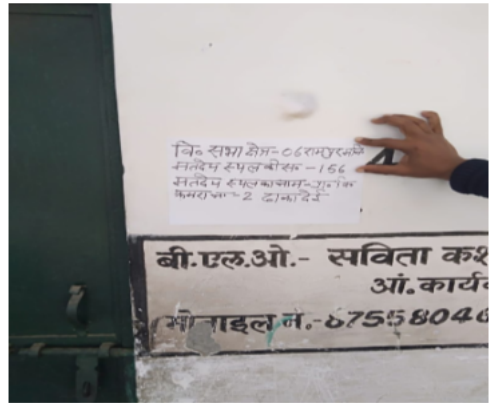 वि० सभा क्षेत्र-06 रामपुर मनि
मतदेय स्थल को सं०-156
मतदेय स्थल का नाम-
कमरा नं०-2 ढाकादेई
बी.एल.ओ.- सविता कश
आं. कार्य
मोबाइल नं.-